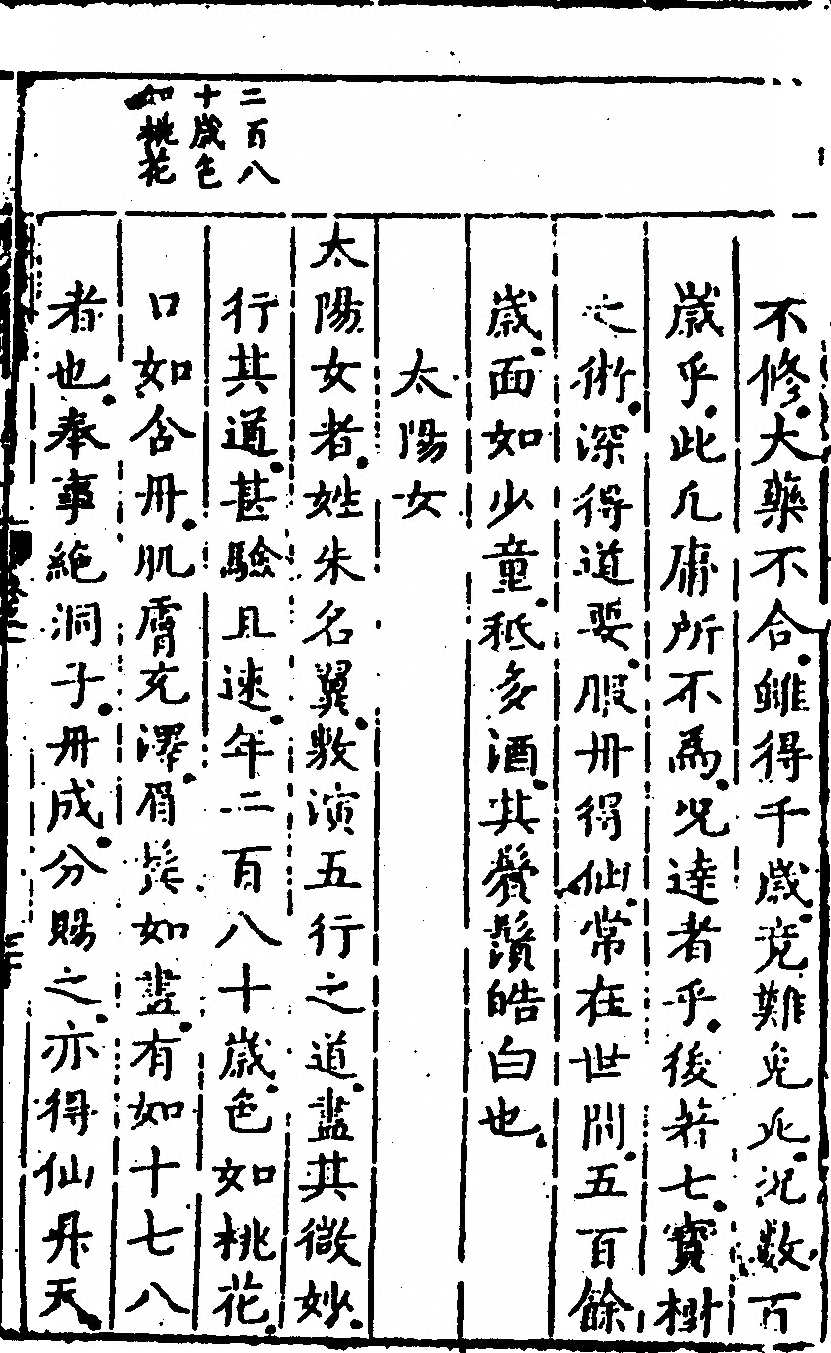 二百八
十歲色
如桃花
不修大藥不合雖得千歲竟難免死況數百
歲乎此凡庸所不為况達者乎後著七寶樹
之術深得道要服丹得仙常在世間五百餘
歲面如少童秪多酒其鬢鬚皓白也
太陽女
太陽女者姓朱名翼敷演五行之道盡其微妙
行其道甚驗且速年二百八十歲色如桃花
口如含丹肌膚充澤眉鬢如畫有如十七八
者也奉事絶洞子丹成分賜之亦得仙昇天